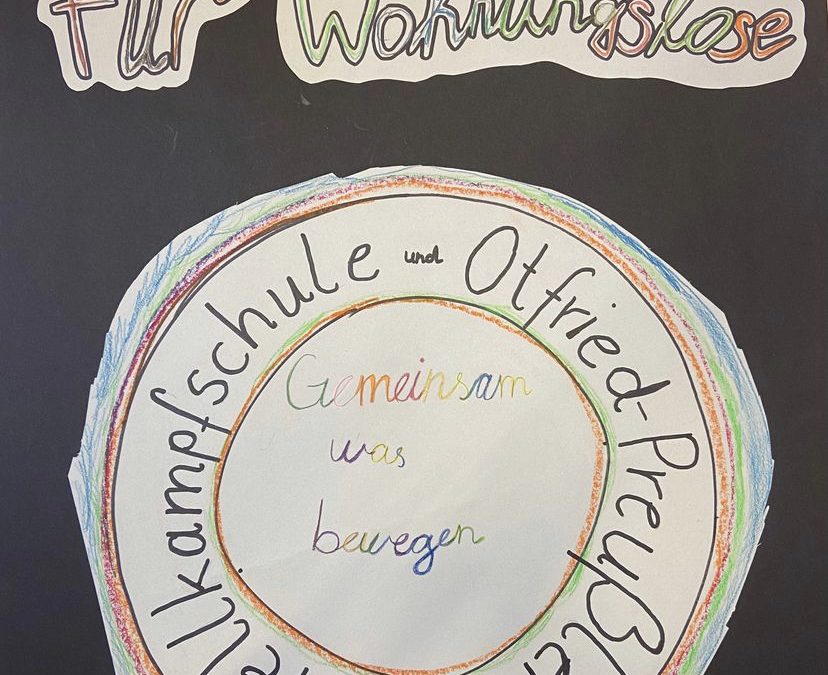 für Wohnungslose
ellkampfschule und Otfried-Preußler
Gemeinsam
was
bewegen